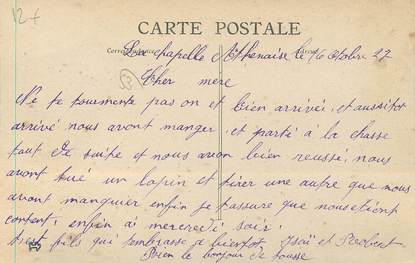 12f
CARTE POSTALE
Correspondance
La chapelle Athenaise le 16 Octobre 27
53
Cher mere
Ne te tourmente pas on et bien arrivé, et aussitot
arrivé nous avont manger, et parté à la chasse
tout de suite et nous avon bien reussi, nous
avont tué un lapin et tirer une autre que nous
avont manquier enfin je tassure que nous étiont
content, enfin a mercredi soir
fils qui tembrasse a bientot, et Robert
bien le bonjour de tousse